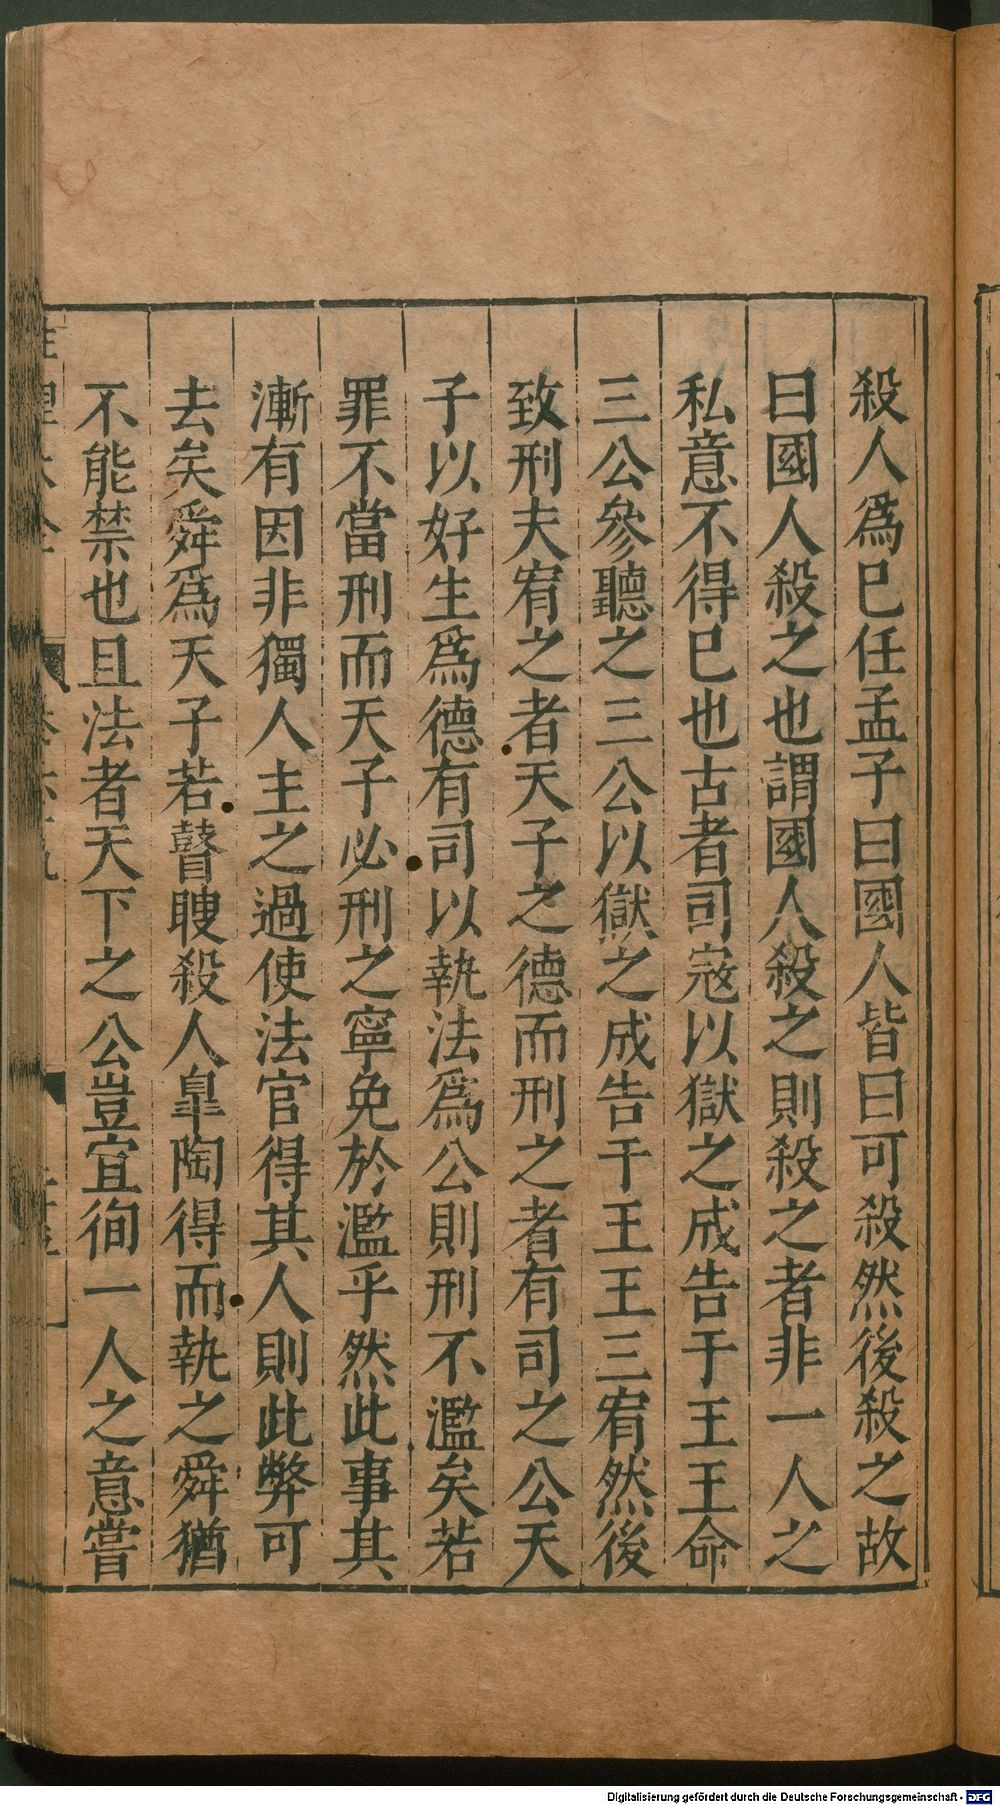 殺人爲已任孟子曰國人皆曰可殺然後殺之故
曰國人殺之也謂國人殺之則殺之者非一人之
私意不得已也古者司寇以獄之成告于王王命
三公參聽之三公以獄之成告于王王三宥然後
致刑夫宥之者天子之德而刑之者有司之公天
子以好生爲德有司以執法爲公則刑不濫矣若
罪不當刑而天子必刑之寧免於濫乎然此事其
漸有因非獨人主之過使法官得其人則此弊可
去矣舜爲天子若瞽瞍殺人臯陶得而執之舜猶
不能禁也且法者天下之公豈宜徇一人之意嘗
Digitalisierung gefördert durch die Deutsche Forschungsgemeinschaft - DFG